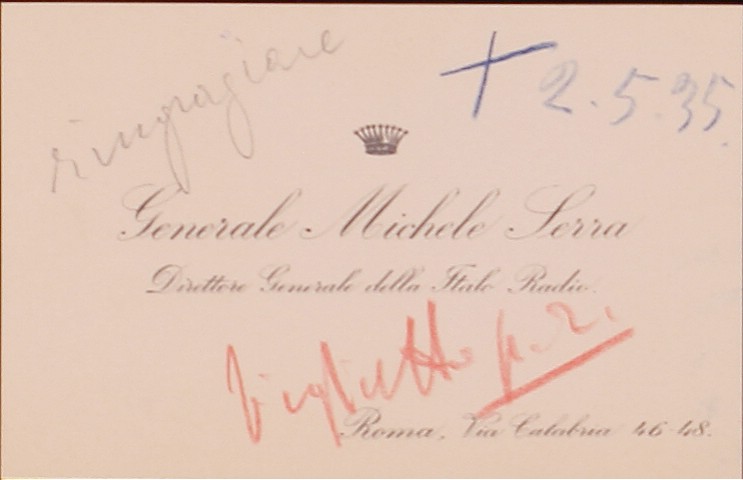 ringraziare
+ 2.5.35.
Generale Michele Serra
Direttore Generale della Italo Radio.
biglietto p. r.
Roma, Via Calabria 46-48.